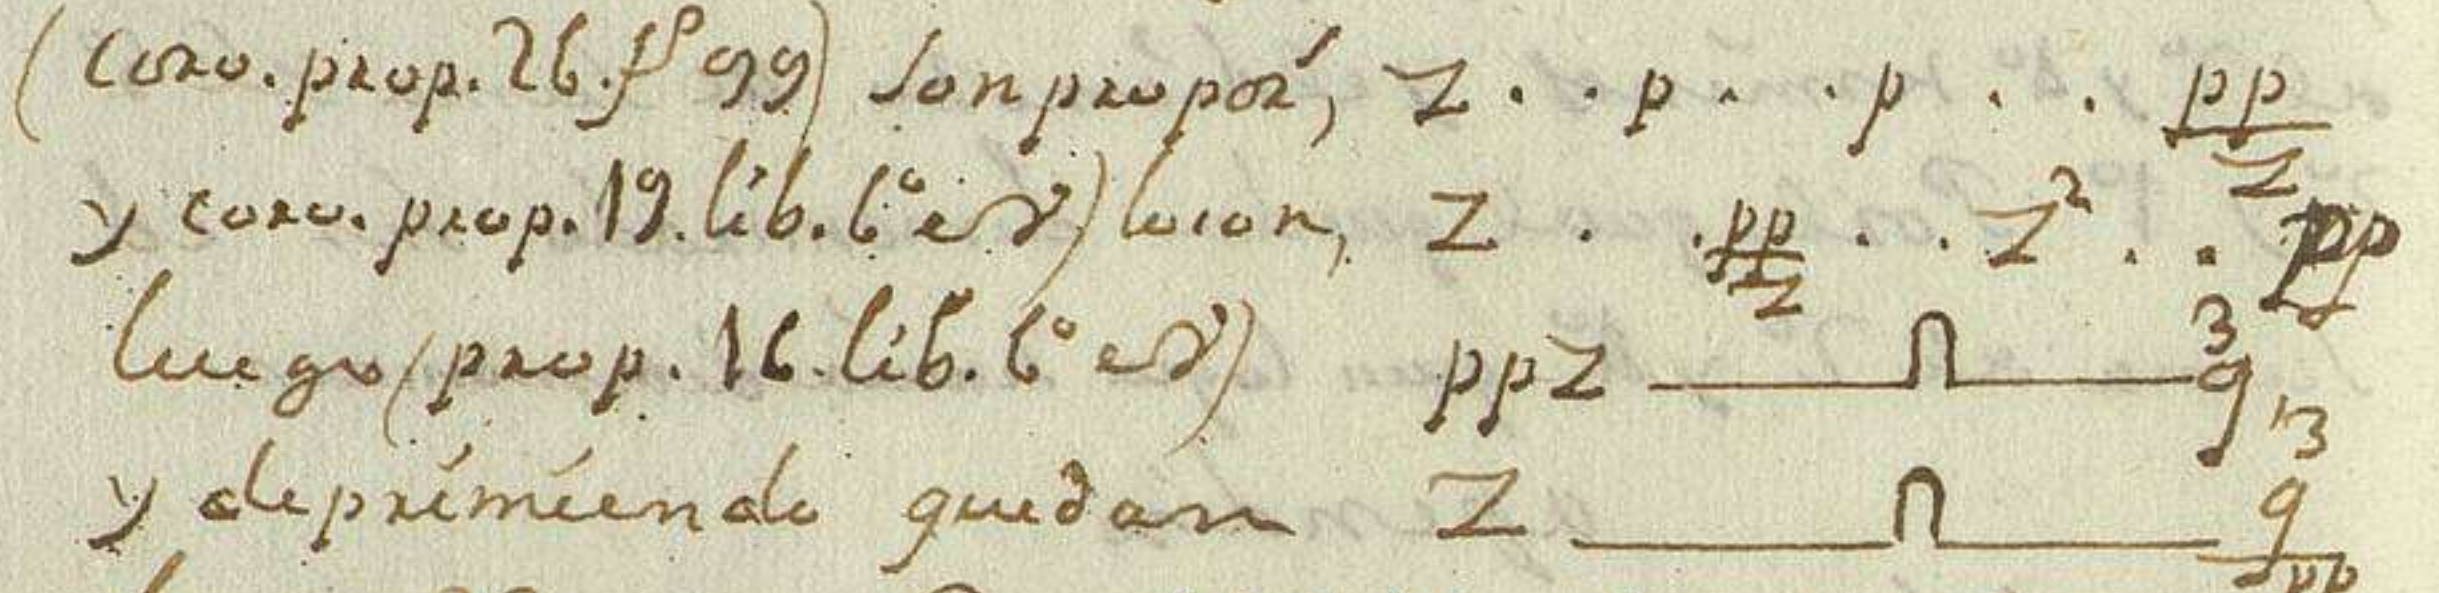 (coro. prop. 26. fº 99) son propor, Z . . p . . p . . pp/Z
y coro. prop. 19. lib. 6º Z . . pp/Z . . Z² . . pp
luego (prop. 16. lib. 6º ppZ ⊓ q³
y deprimiendo quedan Z ⊓ q³/pp